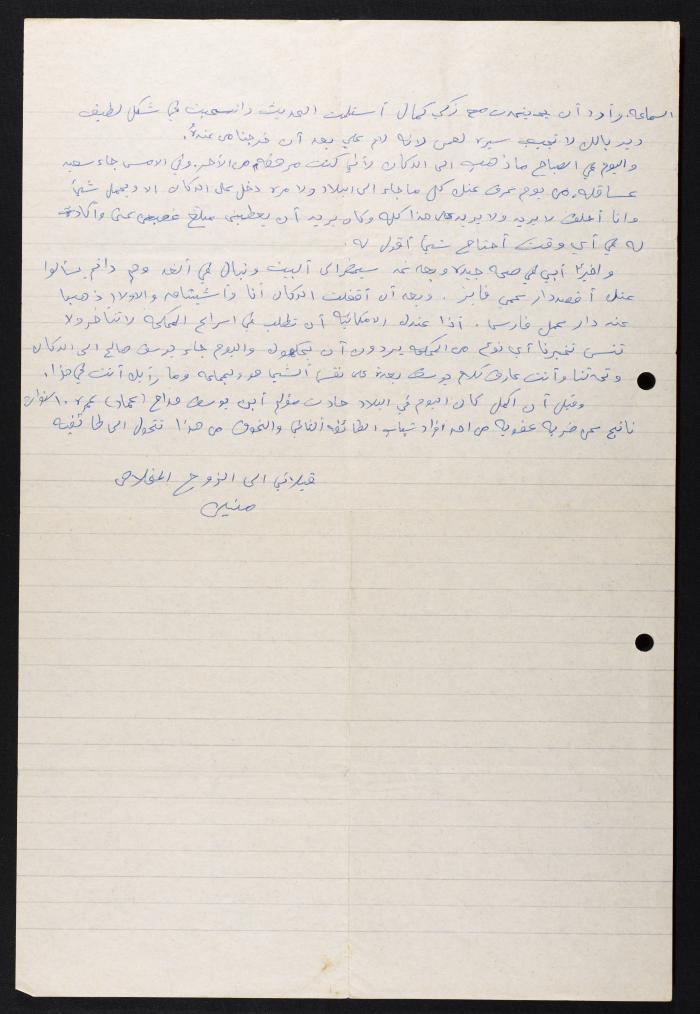 السماعة. وأراد أن يتحدث مع زكي كمال أستلمت الحديث وانسحبت في شكل لطيف
دير بالك لا تجيب سيرة لهس لأنه لام علي بعد أن خرجنا من عنده.
واليوم في الصباح ما ذهبت الى الدكان لأني كنت مرهقة من الأحر. وفي الامس جاء سعيد
عساقلة، من يوم عرف عنك كل ما جاء الى البلاد ولا مرة دخل على الدكان الا ويحمل شيئاً
وانا أحلف لا يريد ولا يريد هذا كله وكان يريد أن يعطيني مبلغ غصبن عني وأكدت
له في أي وقت أحتاج شيئاً أقول له.
واخيراً أبي في صحة جيدة وبعد غد سيحضر الى البيت ونبال في الغد وهم دائم يسألوا
عنك أقصد دار عمي فايز. وبعد أن أقفلت الدكان أنا وأشيتنامه والاولاد ذهبنا
عند دار عمك فارس. أذا عندك الامكانية أن تطلب في اسراع المحكمة لا تتأخر ولا
تنسى تخبرنا أي نوع من المحكمة يريدون أن يحكموك واليوم جاء يوسف صالح الى الدكان
وتحدثنا وأنت عارف كلام يوسف بعده على نفس الشيء هو والجماعة وما رأيك أنت في هذا.
وقبل أن أكمل كان اليوم في البلاد حادث مؤلم أبن يوسف مداح (عماد) عمره ١٠ سنوات
ناتج عن ضربة عفوية من احد أفراد شباب الطائفة الثاني والتخوف من هذا تتحول الى طائفية
قبلاتي الى الزوج المخلص